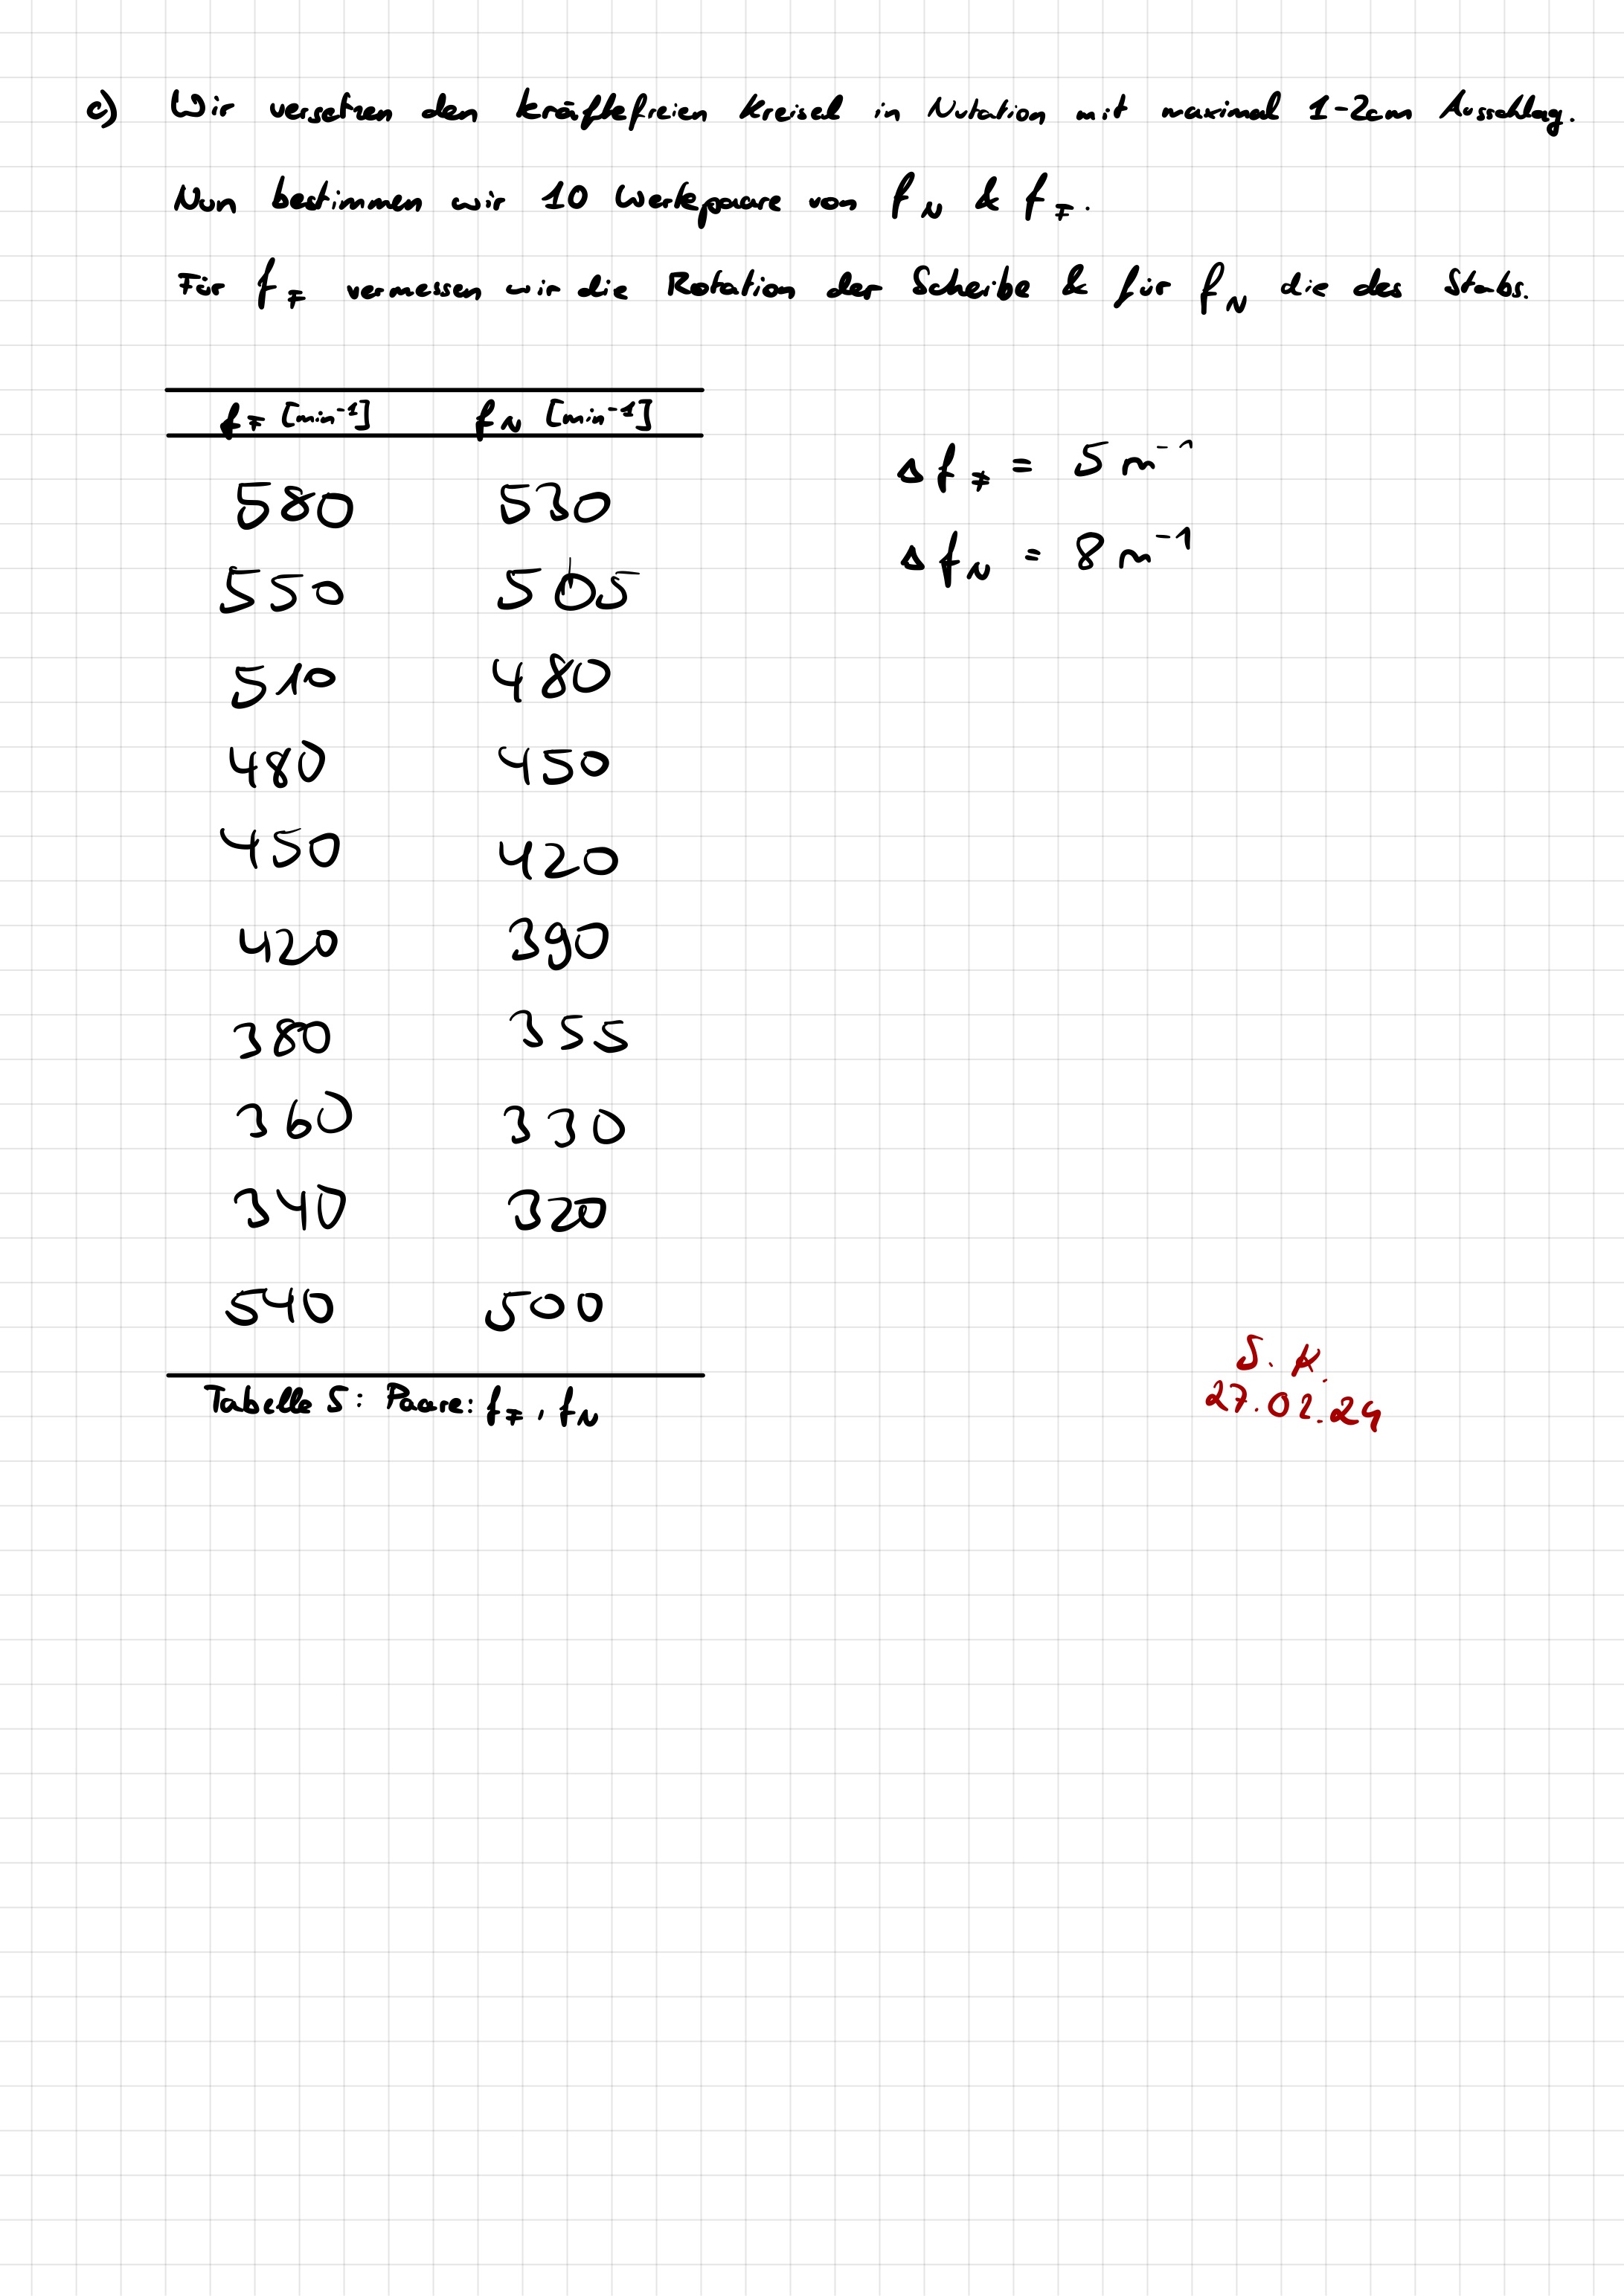 c) Wir versetzen den kräftefreien Kreisel in Nutation mit maximal 1-2cm Ausschlag.
Nun bestimmen wir 10 Wertepaare von f_N & f_F.
Für f_F vermessen wir die Rotation der Scheibe & für f_N die des Stabs.
f_F [min⁻¹] f_N [min⁻¹]
580 530
550 505
510 480
480 450
450 420
420 390
380 355
360 330
340 320
540 500
Tabelle 5: Paare: f_F, f_N
Δf_F = 5 m⁻¹
Δf_N = 8 m⁻¹
S. K.
27.02.24